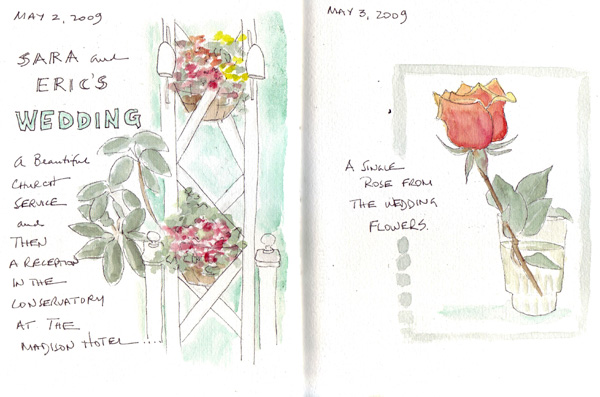 MAY 2, 2009
SARA and
ERIC'S
WEDDING
A Beautiful
CHURCH
SERVICE
and
THEN
A RECEPTION
IN THE
CONSERVATORY
AT THE
MADISON HOTEL....
MAY 3, 2009
A SINGLE
ROSE FROM
THE WEDDING
FLOWERS.